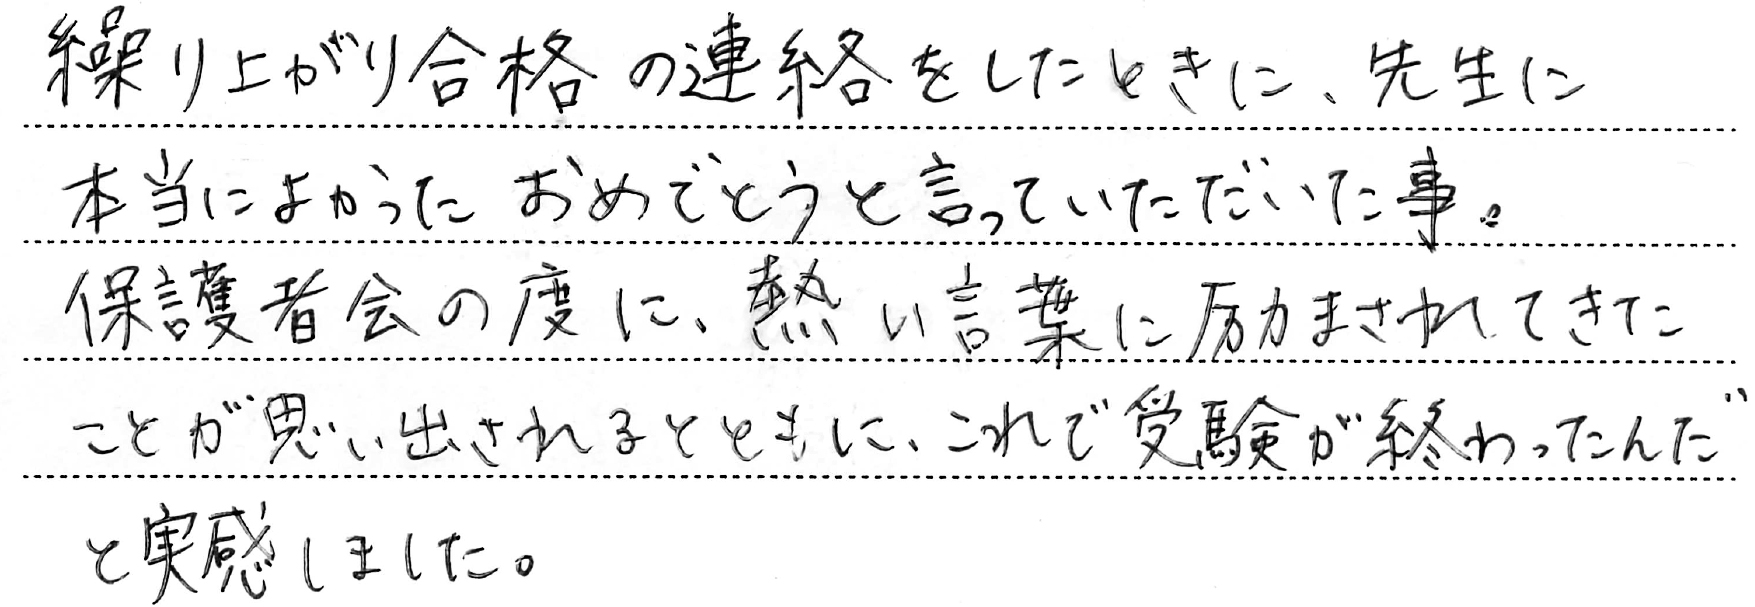 繰り上がり合格の連絡をしたときに、先生に
本当によかった おめでとうと言っていただいた事。
保護者会の度に、熱い言葉に励まされてきた
ことが思い出されるとともに、これで受験が終わったんだ
と実感しました。